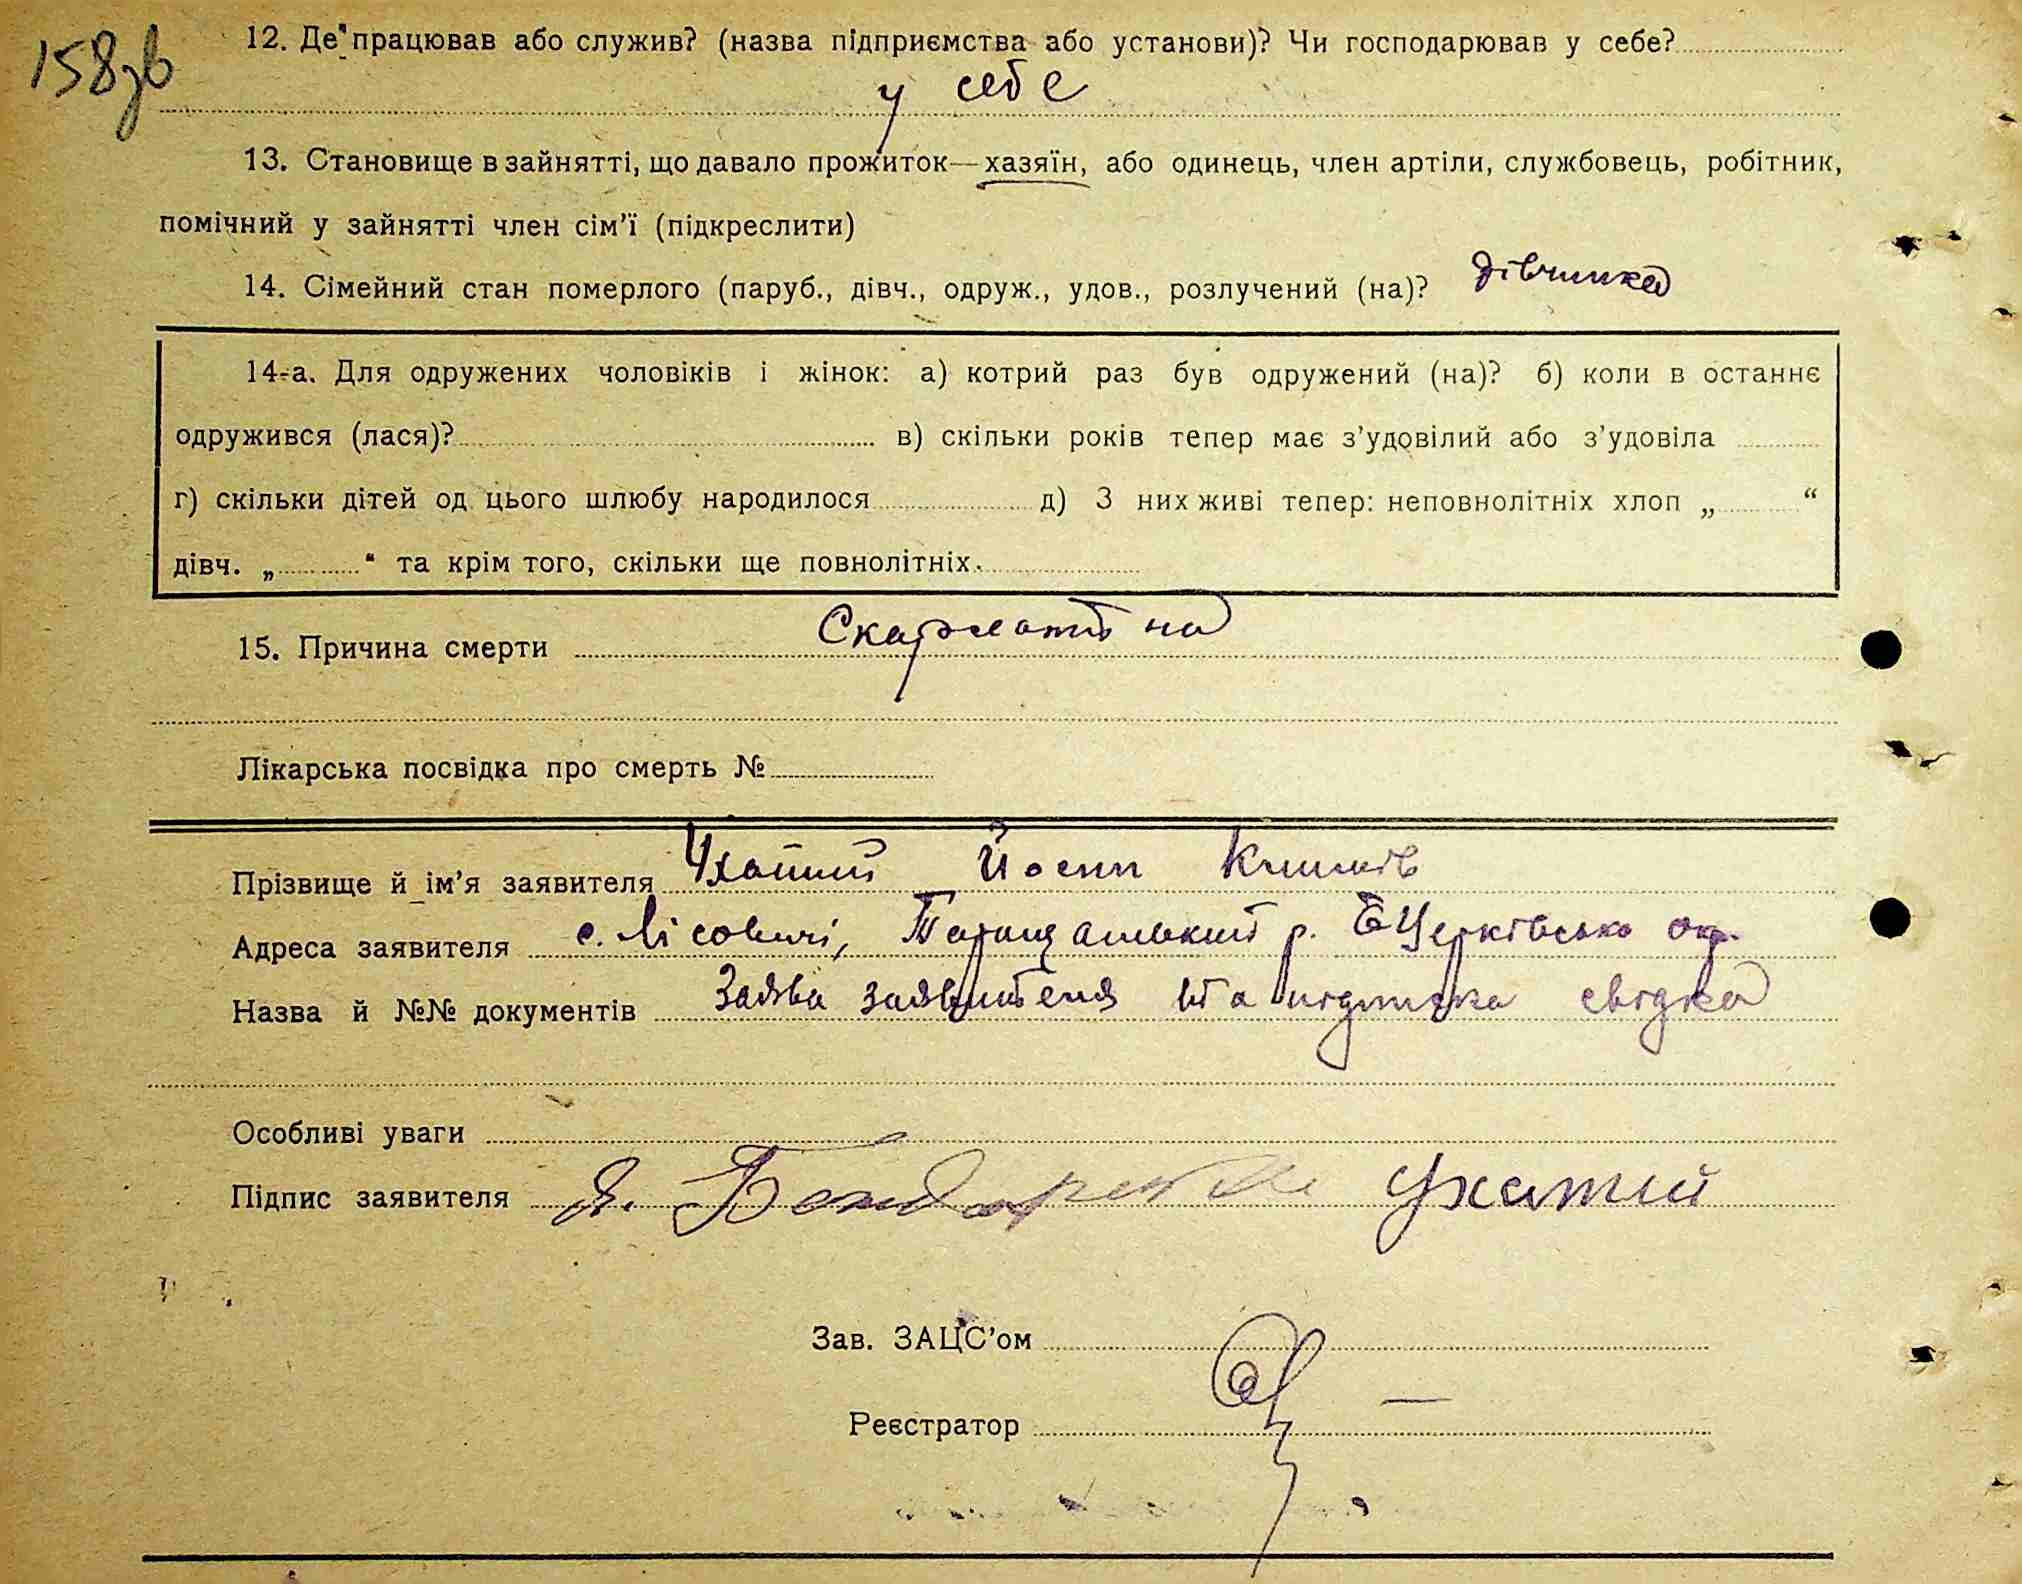 158зв
12. Де працював або служив? (назва підприємства або установи)? Чи господарював у себе?
у себе
13. Становище в зайнятті, що давало прожиток—хазяїн, або одинець, член артіли, службовець, робітник,
помічний у зайнятті член сім'ї (підкреслити)
14. Сімейний стан померлого (паруб., дівч., одруж., удов., розлучений (на)? дівчинка
14-а. Для одружених чоловіків і жінок: а) котрий раз був одружений (на)? б) коли в останнє
одружився (лася)? в) скільки років тепер має з'удовілий або з'удовіла
г) скільки дітей од цього шлюбу народилося д) З них живі тепер: неповнолітніх хлоп „ “
дівч. „ “ та крім того, скільки ще повнолітніх.
15. Причина смерти Скарлатина
Лікарська посвідка про смерть №
Прізвище й ім'я заявителя Ухатий Йосип Климів
Адреса заявителя с. Лісовичі, Таращанський р. БЦерківсько окр.
Назва й №№ документів Заява заявителя та підписка свідка
Особливі уваги
Підпис заявителя Я. Бондаренко Ухатий
Зав. ЗАЦС'ом
Реєстратор